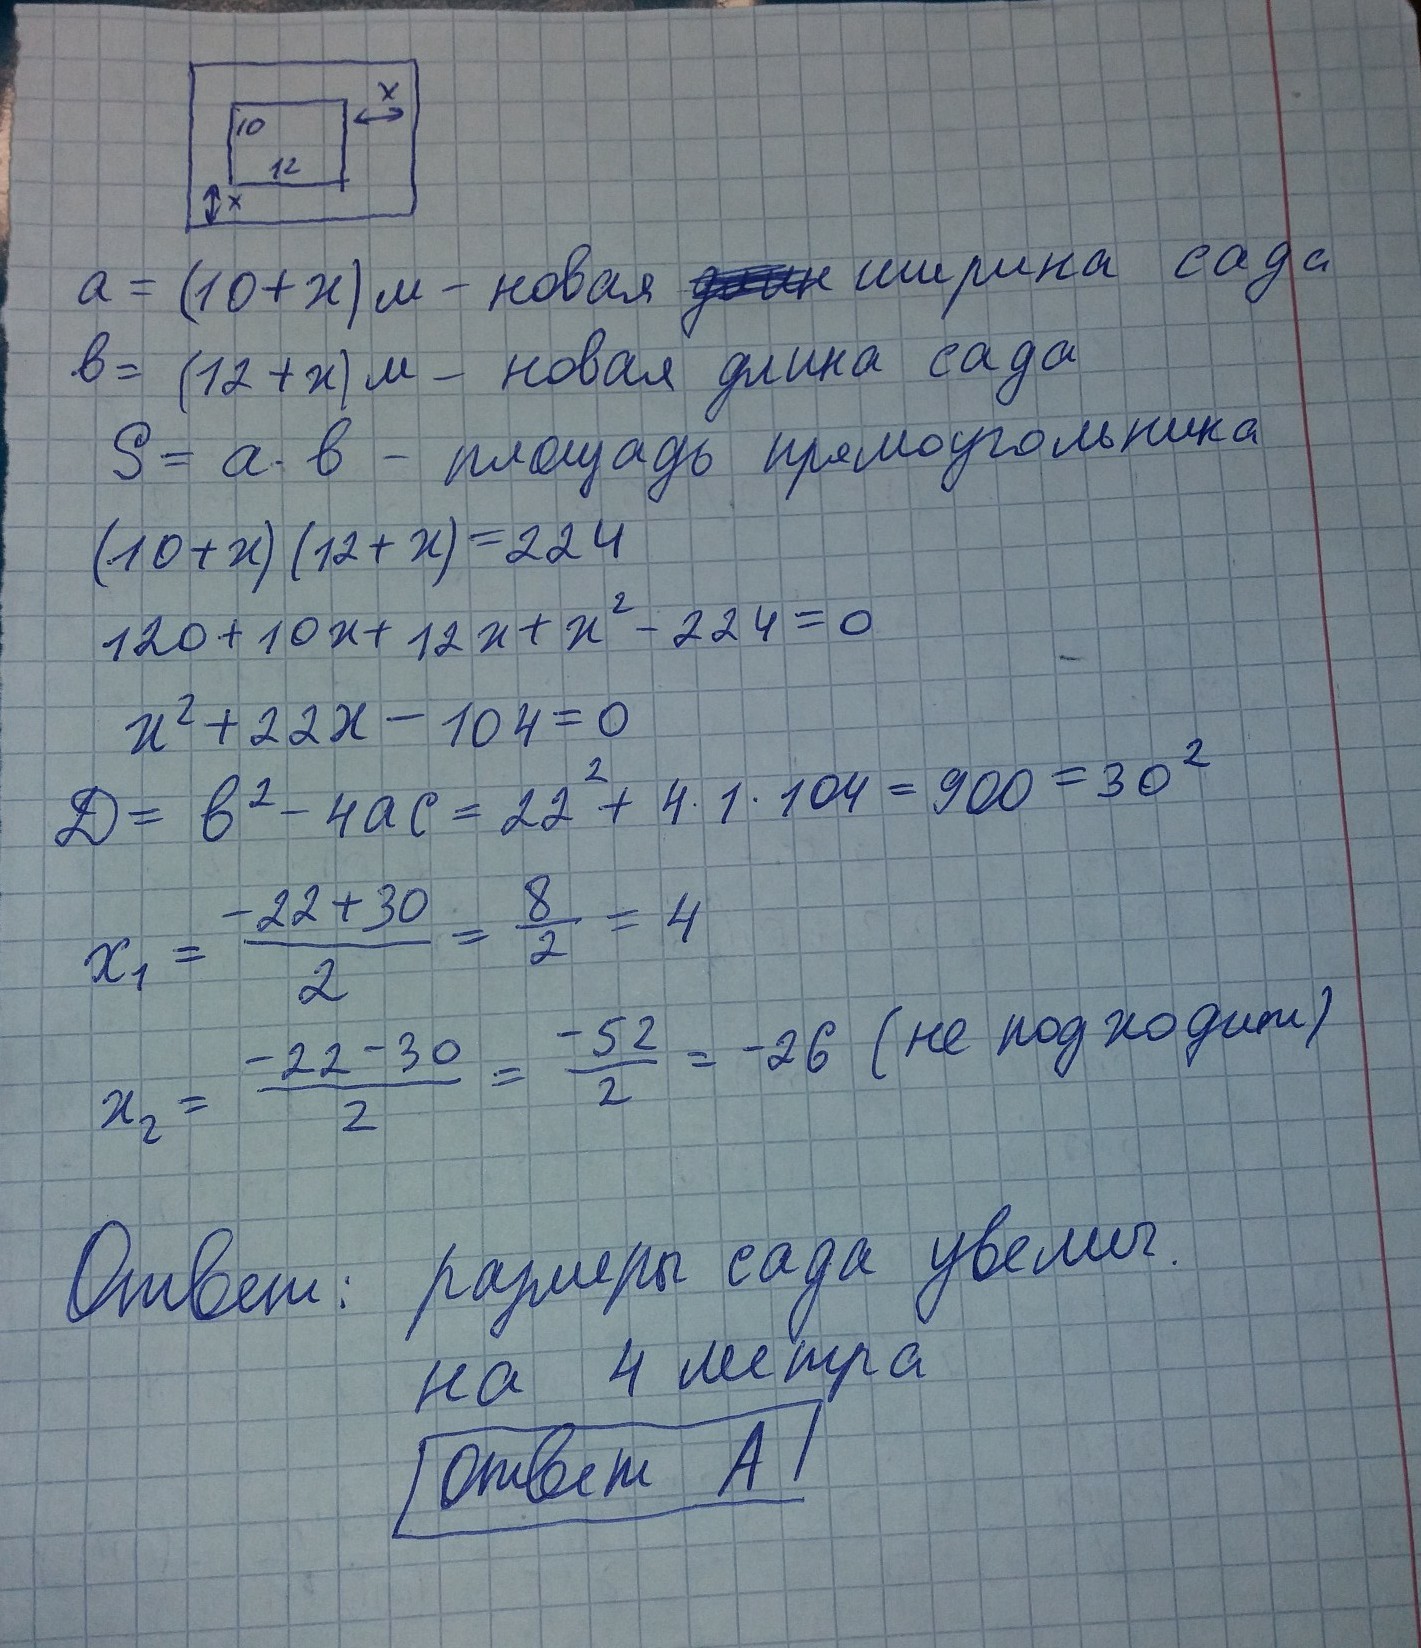 x
10
12
x
a = (10+x) м – новая ширина сада
в = (12+x) м – новая длина сада
S = a · в – площадь прямоугольника
(10+x)(12+x)=224
120+10x+12x+x²-224=0
x²+22x-104=0
Д = в²-4ac = 22²+4·1·104=900=30²
x₁ = (-22+30)/2 = 8/2 = 4
x₂ = (-22-30)/2 = -52/2 = -26 (не подходит)
Ответ: размеры сада увелич.
на 4 метра
Ответ А